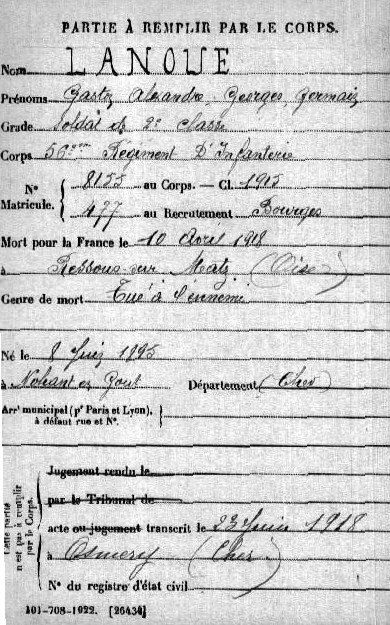 PARTIE À REMPLIR PAR LE CORPS.
Nom LANOUE
Prénoms Gaston Alexandre Georges Germain
Grade Soldat de 2e classe
Corps 56ème Régiment D'Infanterie
N° Matricule. { 8155 au Corps. — Cl. 1915
477 au Recrutement Bourges
Mort pour la France le 10 Avril 1918
à Ressons-sur Matz (Oise)
Genre de mort Tué à l'ennemi
Né le 8 Juin 1895
à Nohant en Gout Département (Cher)
Arrt municipal (pr Paris et Lyon), à défaut rue et N°.
Cette partie n'est pas à remplir par le Corps.
Jugement rendu le
par le Tribunal de
acte ou jugement transcrit le 23 Juin 1918
à Osmery (Cher)
N° du registre d'état civil
101-708-1922. [26434]